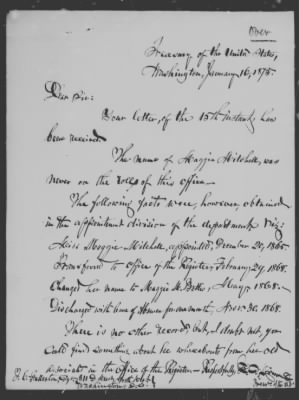 Treasury of the United States,
Washington, January 16, 1875.
Dear Sir:
Your letter, of the 15th instant, has
been received.
The name of Maggie Mitchell, was
never on the rolls of this office.
The following facts were, however, obtained
in the appointment division of the department, viz:
Miss Maggie Mitchell, appointed, December 20, 1865
Transferred to Office of the Register, February 29, 1868.
Changed her name to Maggie M. May 1, 1868.
Discharged with
Nov. 30, 1868.
There is no other record, but, I doubt not, you
could find something about her whereabouts from her old
associates in the Office of the Register. Respectfully
Washington, D.C.